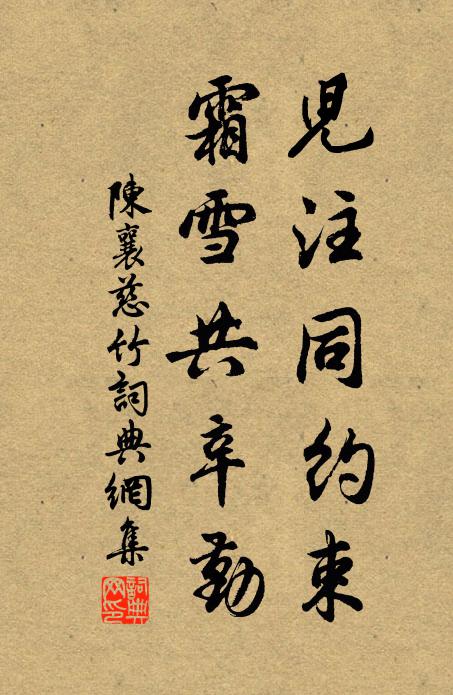 兒注同約束
霜雪共辛勤
陳襄慈竹詞典網集
詞典
网印